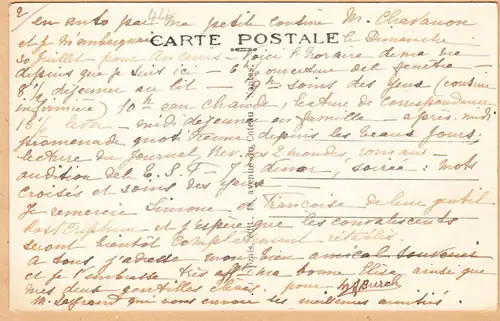 2/ en auto par ma petit cousine M. Chavanon
et je m'embarquai le Dimanche
CARTE POSTALE
30 juillet pour Voici l'horaire de ma vie
depuis que je suis ici – 6h ouverture de la fenêtre –
8h 1/2 déjeuner au lit – 9h soins des yeux (cousine
infirmière) 10h eau chaude, lecture de correspondance
lever – midi déjeuner en famille – après midi
promenade quot depuis les beaux jours;
lecture du Journal, Rev. des 2 mondes, romans –
audition de la T.S.F – 7h diner, soirée: mots
croisés et soins des yeux
Je remercie Simone et Françoise de leur gentil
et j'espère que les convalescents
seront bientôt complètement rétablis.
A tous j'adresse mon bien amical souvenir
et je t'embrasse très affect. ma bonne Elise ainsi que
mes deux gentilles élèves. pour M Burch
M. Legrand qui vous envoie ses meilleures amitiés.
avenue du Coteau, Nantes